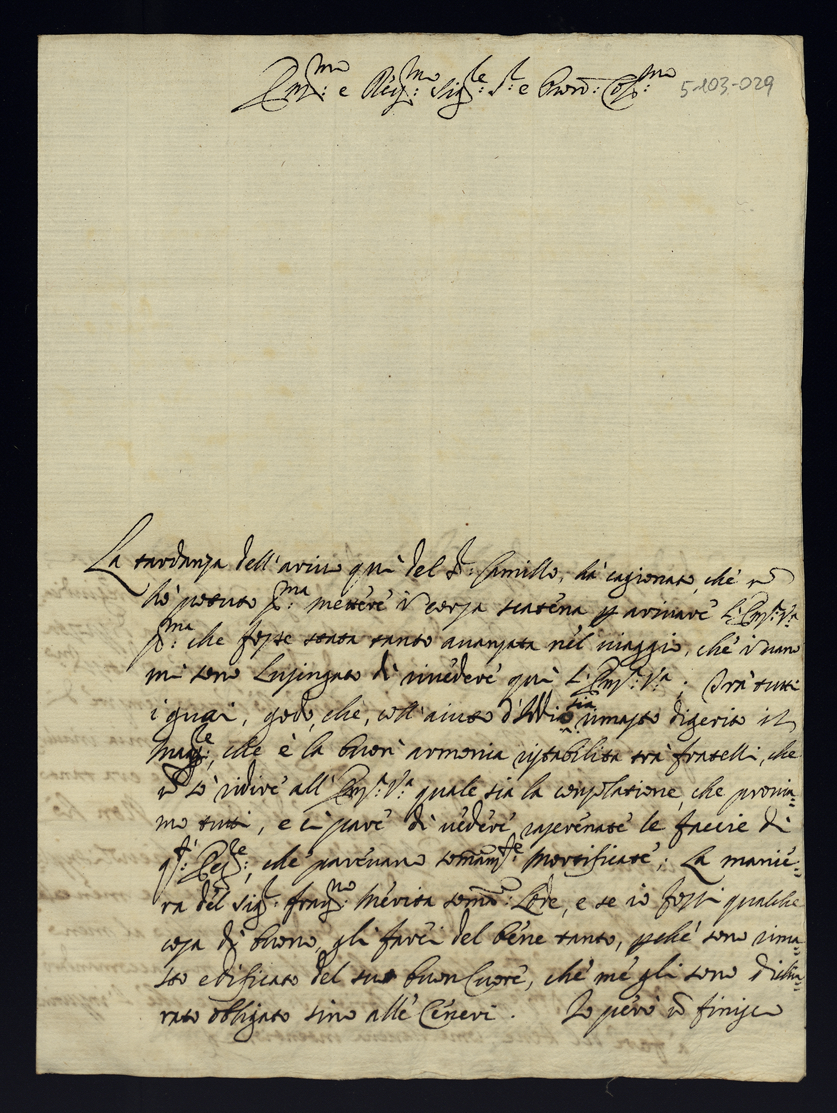 Em̃:mo e Rev:mo Sig:re S:r e Pron: Col:mo
5-103-029
La tardanza dell'arivo quì del S:r Camillo, hà cagionato, che nō
hò potuto p:ma mettere in carta p arivare L'Em:a V:a
p:ma che fosse stata tanto avanzata nel viaggio, che in vano
mi sono lusingato di rivedere quì L'Em:a V:a. Frà tutti
i guai, godo, che, coll'aiuto d'Iddio sia rimasto digerito il
mag:re, che è la buon'armonia ristabilita trà fratelli, che
nō sò ridire all'Em:a V:a quale sia la consolazione, che provia=
mo tutti, e ci pare di vedere rasserenate le faccie di
che parevano som̃am:te mortificate; La manie=
ra del Sig: merita som̃a Lode, e se io fossi qualche
cosa di buono, gli farei del bene tanto, pché sono rima=
sto edificato del suo buon Cuore, che me gli sono dichia=
rato obligato sino alle Ceneri. Io però nō finisco